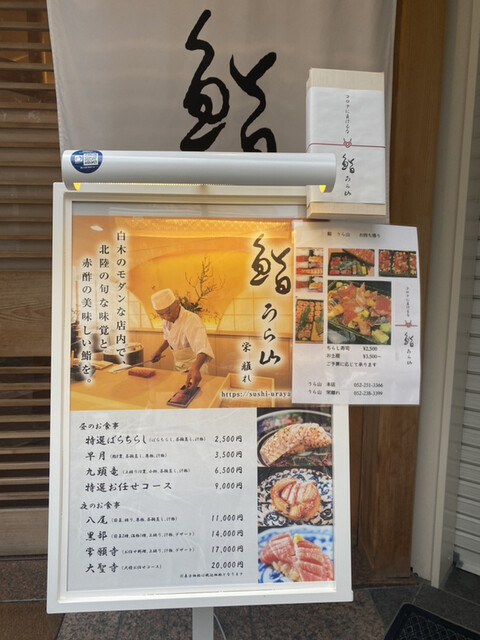 鮨
コロナにまけるな
鮨 うら山
白木のモダンな店内で、
北陸の旬な味覚と
赤酢の美味しい鮨を。
鮨 うら山
栄 離れ
https://sushi-uraya
鮨 うら山 お持ち帰り
ちらし寿司 ¥2,500
お土産 ¥3,500〜
ご予算に応じて承ります
うら山 本店 052-251-3366
うら山 栄離れ 052-238-3399
コロナにまけるな
鮨 うら山
昼のお食事
特選ばらちらし 2,500円
早月 3,500円
九頭竜 6,500円
特選お任せコース 9,000円
夜のお食事
八尾 11,000円
黒部 14,000円
常願寺 17,000円
大聖寺 20,000円